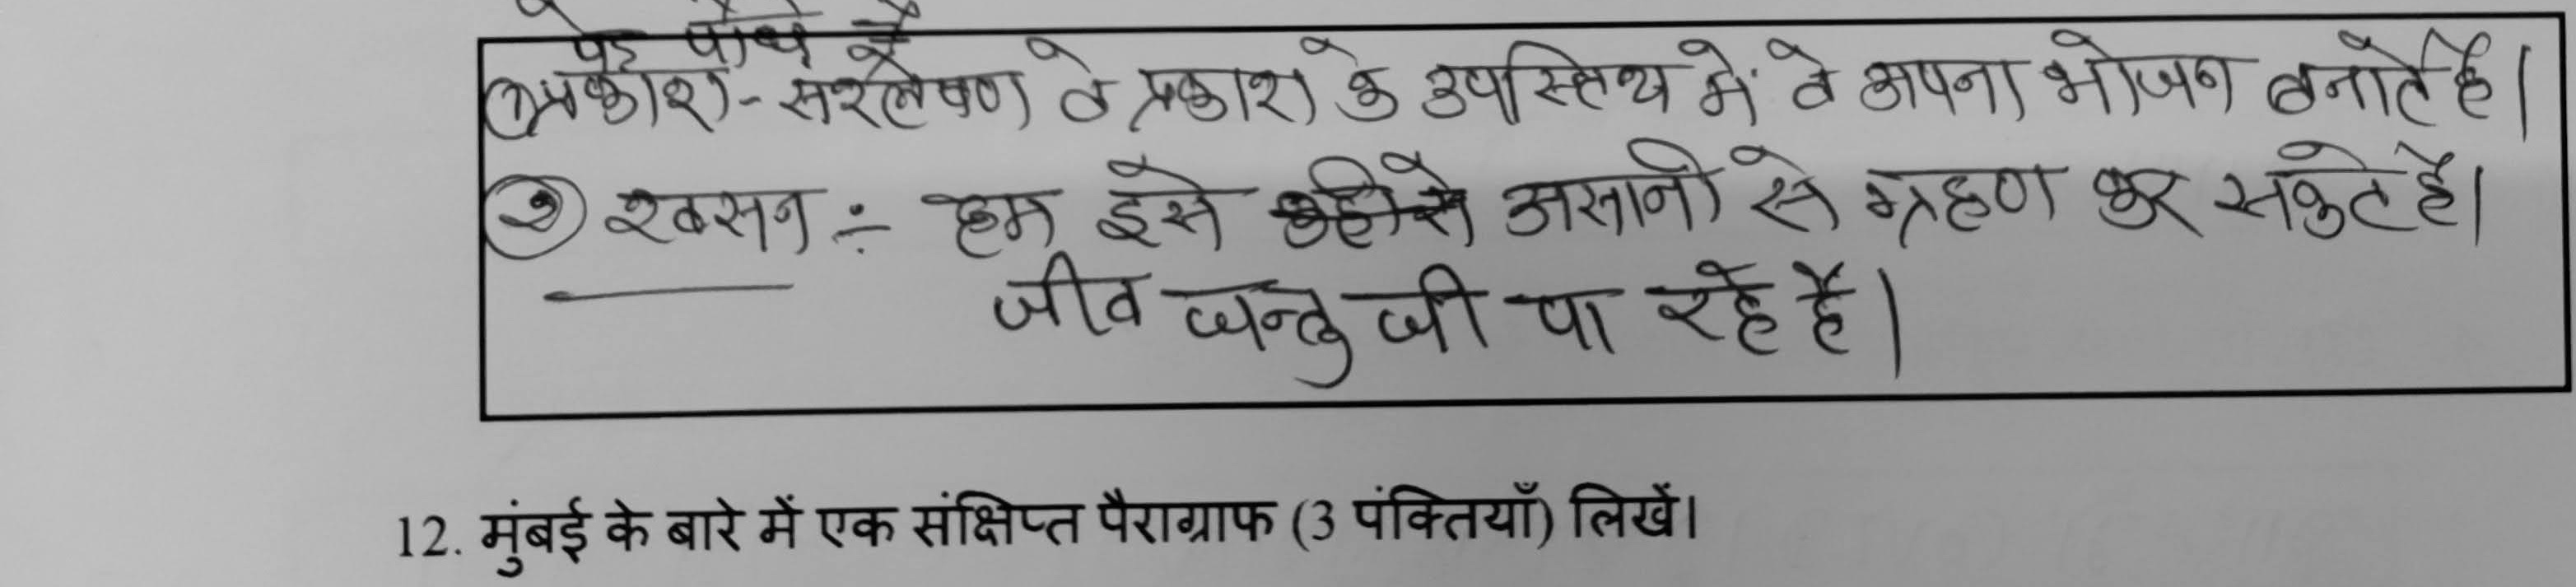 पेड़ पौधे में
① प्रकाश - सश्लेषण वे प्रकाश के उपस्तिथ में वे अपना भोजन बनाते है।
② श्वसन ÷ हम इसे असानी से ग्रहण कर सकते है।
जीव जन्तु जी पा रहे है।
12. मुंबई के बारे में एक संक्षिप्त पैराग्राफ (3 पंक्तियाँ) लिखें।